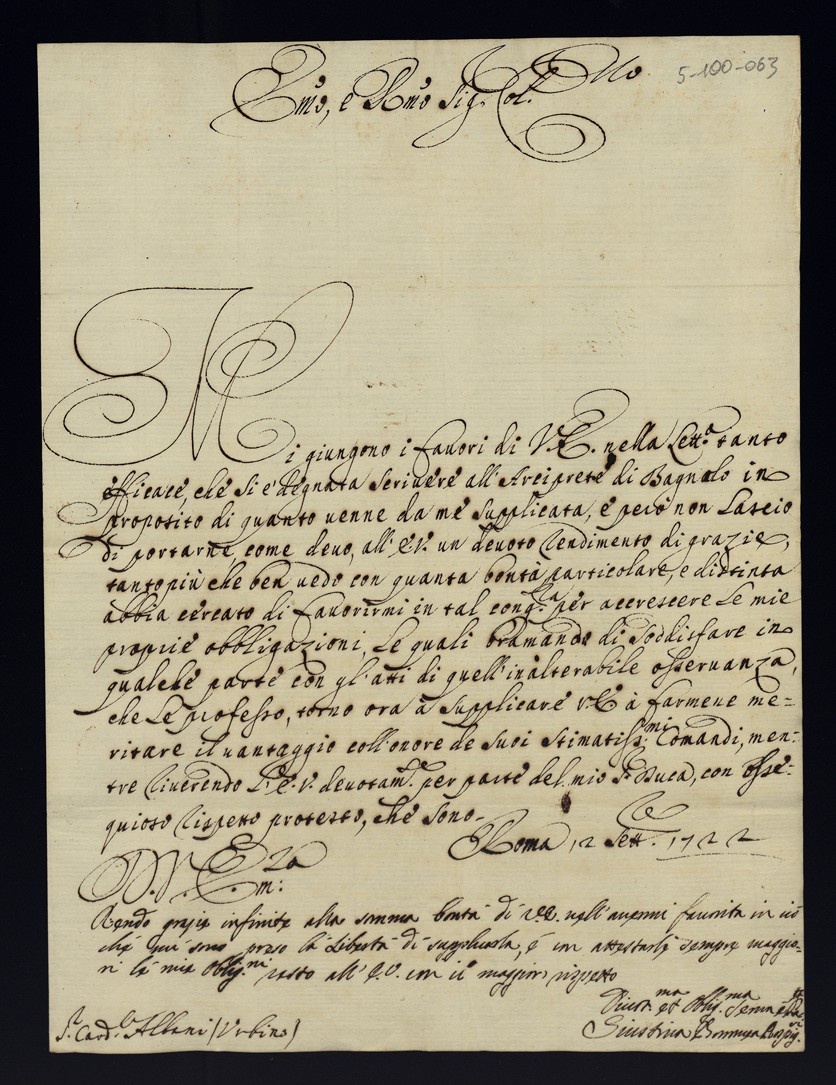 5-100-063
Emo, e Rmo Sig. Col. Mo
Mi giungono i favori di V.E. nella Lett.a tanto
efficace, che si è degnata scrivere all'Arciprete di Bagnolo in
proposito di quanto venne da me supplicata, e però non Lascio
di portarne, come devo, all'E.V. un devoto rendimento di grazie,
tanto più che ben vedo con quanta bontà particolare, e distinta
abbia cercato di favorirmi in tal cong.a per accrescere Le mie
proprie obbligazioni, Le quali bramando di soddisfare in
qualche parte con gl'atti di quell'inalterabile osservanza,
che Le professo, torno ora a supplicare V.E. à farmene me=
ritare il vantaggio coll'onore de suoi stimatiss.mi Comandi, men=
tre riverendo L'E.V. devotam.e per parte del mio S.r Duca, con osse=
quioso rispetto protesto, che sono
Roma 12 Sett.re 1722
D. V. Eza
Em:
Rendo grazie infinite alla somma bontà di V.E. nell'avermi favorita in ciò
che già sono preso la libertà di supplicarla, e con attestarle sempre maggio=
ri le mie Oblig.ni resto all'E.V. con il maggior rispetto
Divot.ma et Oblig.ma Serva
Giustina Rospig.
S.r Card.le Albani (Urbino)